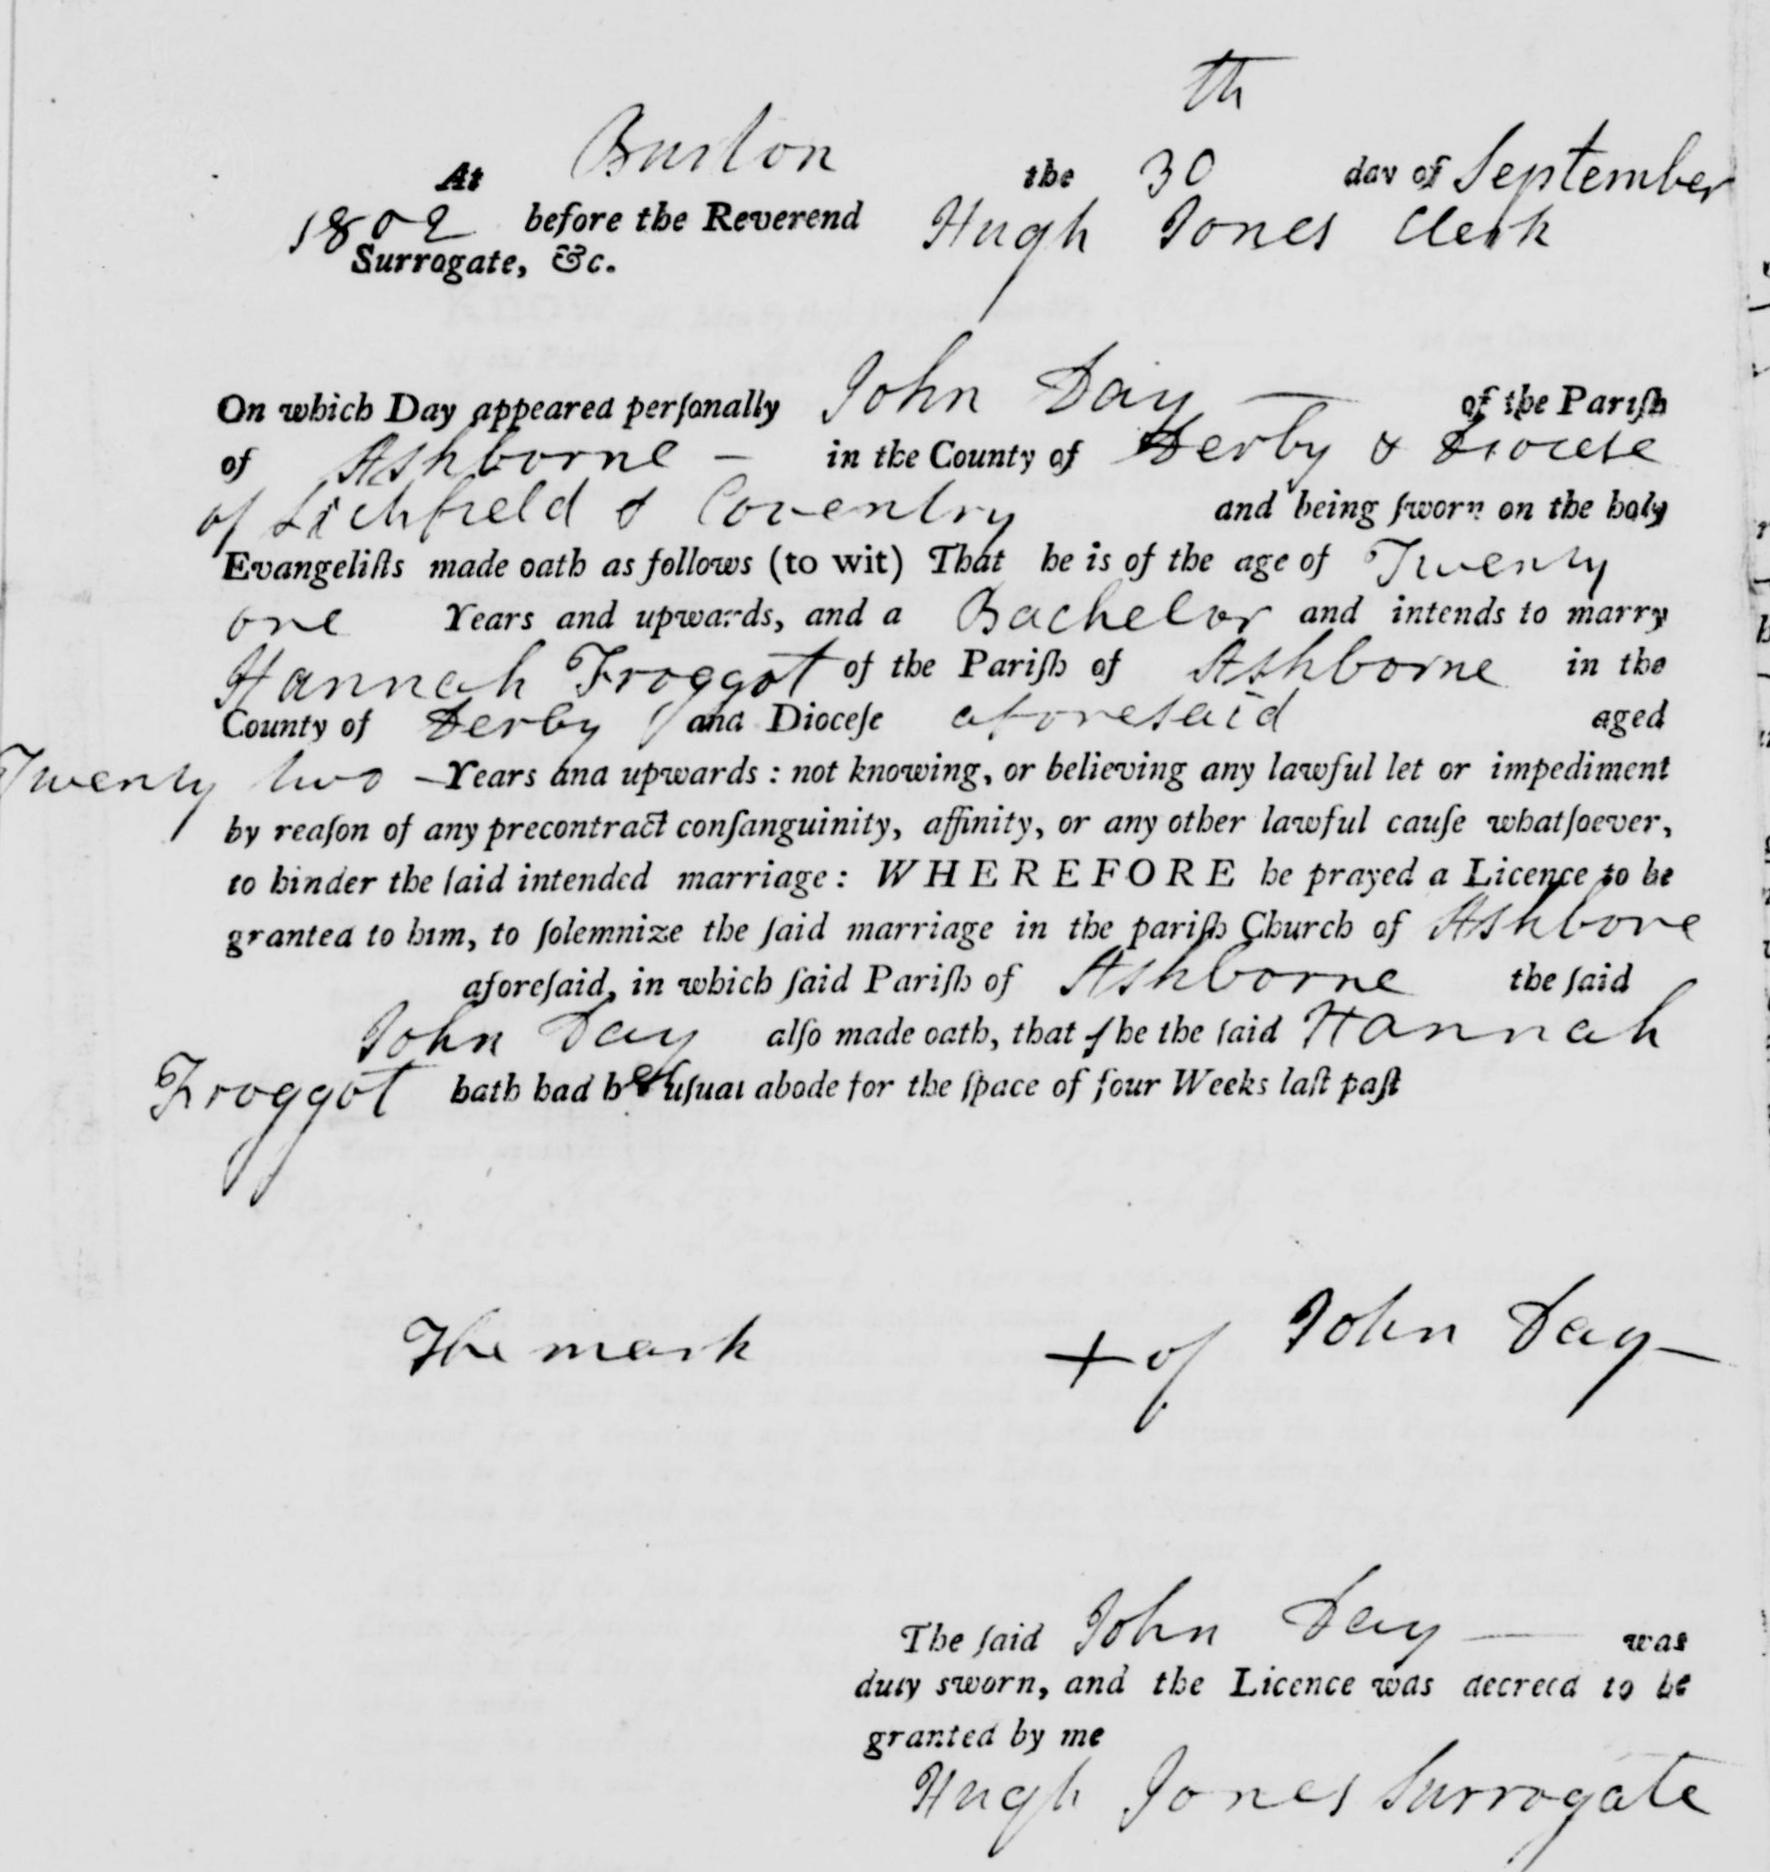 At Burton the 30th day of September
1802 before the Reverend Hugh Jones Clerk
Surrogate, &c.
On which Day appeared perſonally John Day — of the Pariſh
of Ashborne – in the County of Derby & Diocese
of Lichfield & Coventry and being ſworn on the holy
Evangeliſts made oath as follows (to wit) That he is of the age of Twenty
one Years and upwards, and a Bachelor and intends to marry
Hannah Froggot of the Pariſh of Ashborne in the
County of Derby and Dioceſe aforesaid aged
Twenty two – Years and upwards : not knowing, or believing any lawful let or impediment
by reaſon of any precontract conſanguinity, affinity, or any other lawful cauſe whatſoever,
to hinder the ſaid intended marriage: WHEREFORE he prayed a Licence to be
granted to him, to ſolemnize the ſaid marriage in the pariſh Church of Ashbore
aforeſaid, in which ſaid Pariſh of Ashborne the ſaid
John Day alſo made oath, that ſhe the ſaid Hannah
Froggot hath had her uſual abode for the ſpace of four Weeks laſt paſt
The mark + of John Day –
The ſaid John Day — was
duly sworn, and the Licence was decreed to be
granted by me
Hugh Jones Surrogate